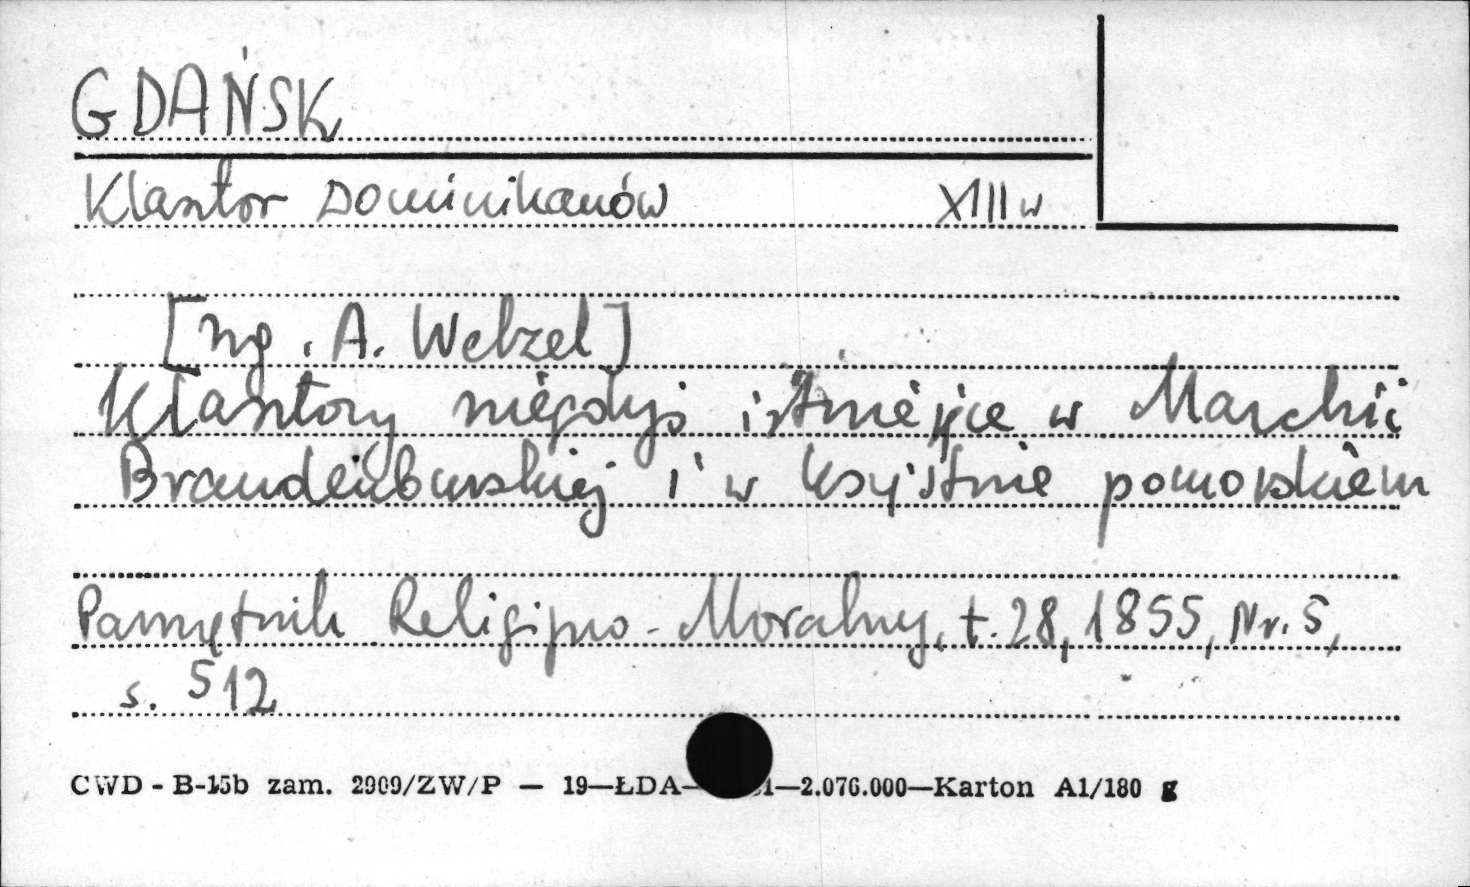 GDAŃSK
Klasztor Dominikanów XIII w
[wg. A. Wetzel]
Klasztory niegdyś istniejące w Marchii
Brandenburskiej i w Księstwie pomorskiem
Pamiętnik Religijno-Moralny, t. 28, 1855, Nr. 5,
s. 512
CWD - B-15b zam. 2909/ZW/P — 19—ŁDA— 1—2.076.000—Karton A1/180 g